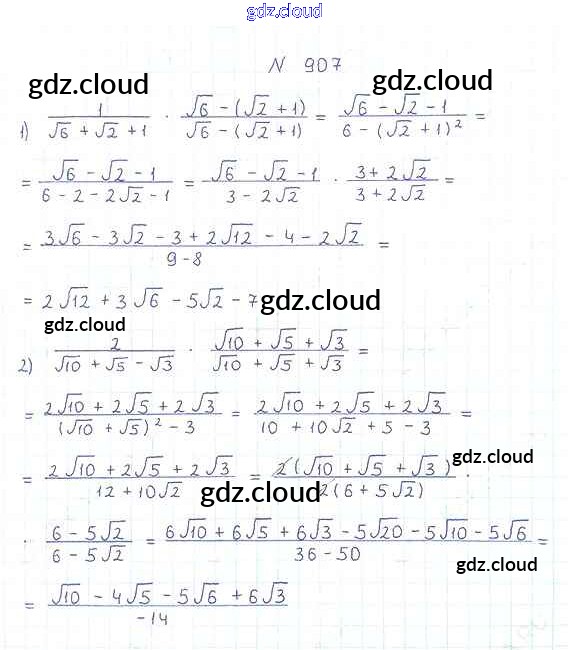 gdz.cloud
N 907
gdz.cloud gdz.cloud
1) 1/(√6 + √2 + 1) · (√6 - (√2 + 1))/(√6 - (√2 + 1)) = (√6 - √2 - 1)/(6 - (√2 + 1)²) =
= (√6 - √2 - 1)/(6 - 2 - 2√2 - 1) = (√6 - √2 - 1)/(3 - 2√2) · (3 + 2√2)/(3 + 2√2) =
= (3√6 - 3√2 - 3 + 2√12 - 4 - 2√2)/(9 - 8) =
= 2√12 + 3√6 - 5√2 - 7 gdz.cloud
gdz.cloud
2) 2/(√10 + √5 - √3) · (√10 + √5 + √3)/(√10 + √5 + √3) =
= (2√10 + 2√5 + 2√3)/((√10 + √5)² - 3) = (2√10 + 2√5 + 2√3)/(10 + 10√2 + 5 - 3) =
gdz.cloud
= (2√10 + 2√5 + 2√3)/(12 + 10√2) = 2(√10 + √5 + √3)/2(6 + 5√2) ·
gdz.cloud
· (6 - 5√2)/(6 - 5√2) = (6√10 + 6√5 + 6√3 - 5√20 - 5√10 - 5√6)/(36 - 50) =
gdz.cloud
= (√10 - 4√5 - 5√6 + 6√3)/(-14)